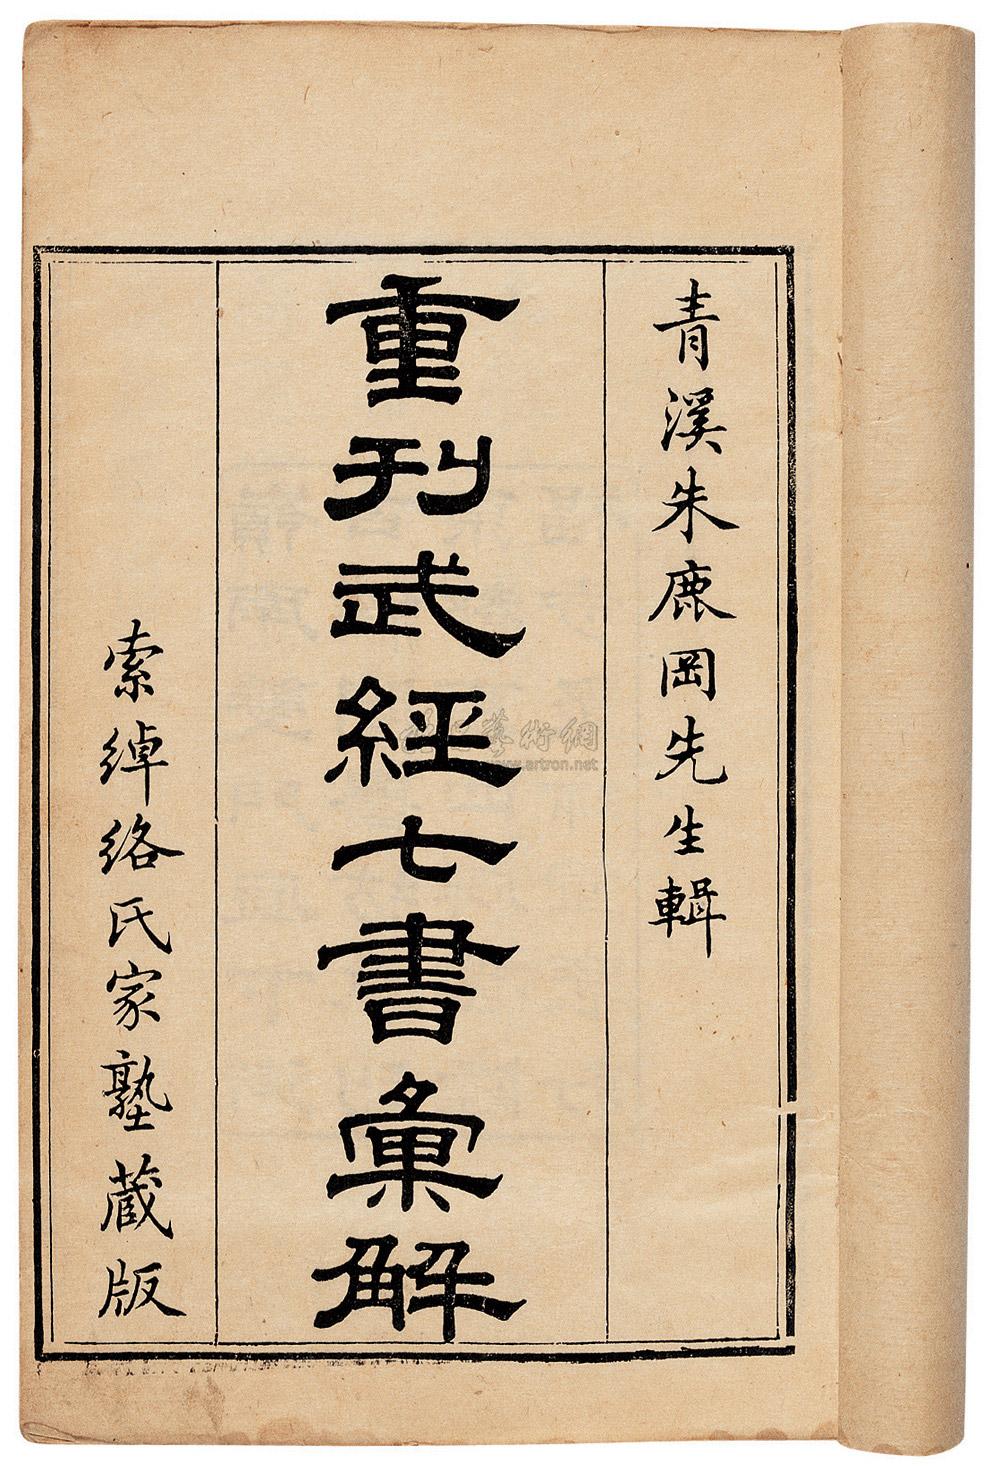 青溪朱鹿岡先生輯
重刊武經七書彙解
索綽絡氏家塾藏版
藝術網
www.artron.net